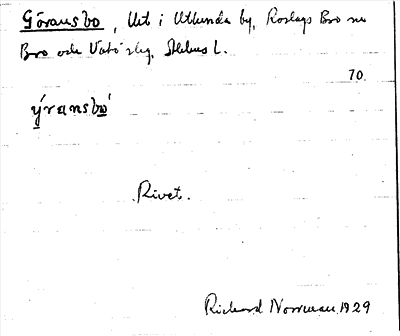 Göransbo, Urt i Utlunda by, Roslags Bro sn
Bro och Vätö slg, Sthlms L.
70
Rivet.
Richard Norrman 1929